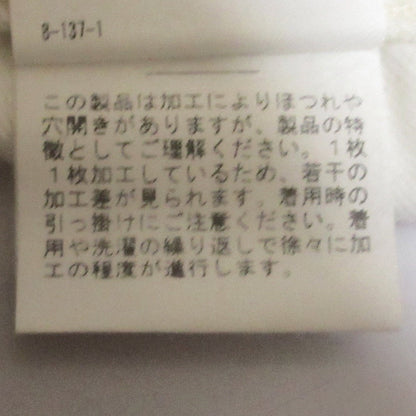 8-137-1
この製品は加工によりほつれや
穴開きがありますが、製品の特
徴としてご理解ください。1枚
1枚加工しているため、若干の
加工差が見られます。着用時の
引っ掛けにご注意ください。着
用や洗濯の繰り返しで徐々に加
工の程度が進行します。